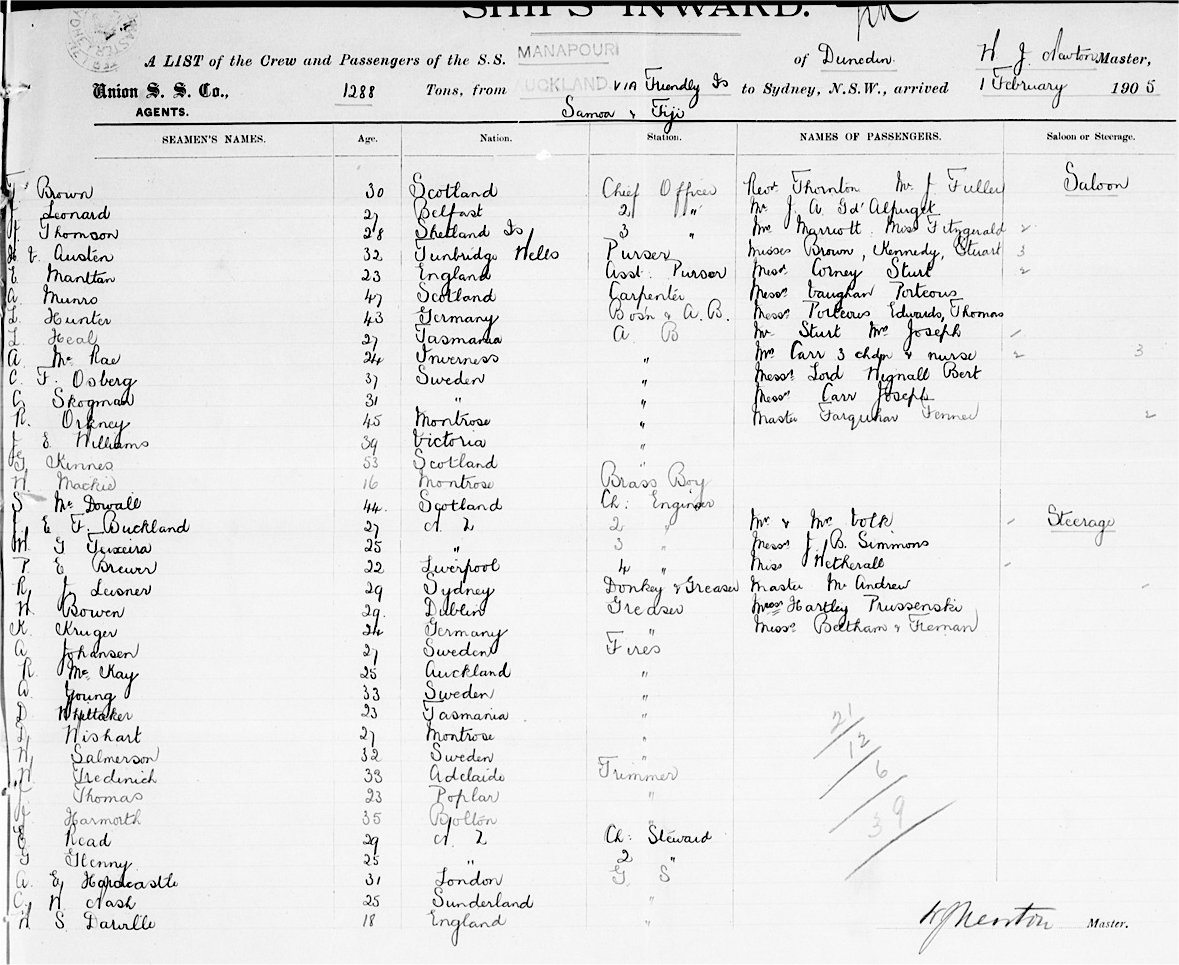 SHIPS INWARD.
A LIST of the Crew and Passengers of the S.S. MANAPOURI of Dunedin H J Newton Master,
Union S. S. Co., 1288 Tons, from AUCKLAND VIA Friendly Is to Sydney, N.S.W., arrived 1 February 1905
AGENTS. Samoa & Fiji
SEAMEN'S NAMES. Age. Nation. Station. NAMES OF PASSENGERS. Saloon or Steerage.
Brown 30 Scotland Chief Officer Revd Thornton Mr J Fuller Saloon
Leonard 27 Belfast 2 " Mr J. A. Gd' Alpuget
Thomson 28 Shetland Is 3 " Mrs Marriott Miss Fitzgerald 2
Austen 32 Tunbridge Wells Purser Misses Brown, Kennedy, Stuart 3
Manttan 23 England Asst. Purser Messrs Corney Sturt 2
A. Munro 47 Scotland Carpenter Messrs Vaughan Porteous
Hunter 43 Germany Bosn & A. B. Messrs Porteous Edwards, Thomas
Heal 27 Tasmania A B Mr Sturt Mrs Joseph
A. Mc Rae 24 Inverness " Mrs Carr 3 chdn & nurse 2 3
C. F. Osberg 37 Sweden " Messrs Lord Wignall Bert
Skogman 31 " " Messrs Carr Joseph
R. Orkney 45 Montrose " Master Farquhar Fenner 2
J E Williams 39 Victoria "
G Kinnes 53 Scotland "
Mackie 16 Montrose Brass Boy
S Mc Dowall 44. Scotland Ch: Enginer
E F. Buckland 27 N Z 2 " Mr & Mrs Volk Steerage
M. G Teixeira 25 " 3 " Messrs J. B. Simmons
P E Brewer 22 Liverpool 4 " Miss Wetherall
R, J. Leisner 29 Sydney Donkey & Greaser Master Mc Andrew
Bowen 29. Dublin Greaser Messrs Hartley Prussenski
K. Kruger 24 Germany " Messrs Beetham & Fleman
A. Johansen 27 Sweden Fires
R. Mc Kay 25 Auckland "
Young 33 Sweden "
D. Whittaker 23 Tasmania "
D, Wishart 27 Montrose "
Salmerson 32 Sweden "
Tredinich 33 Adelaide Trimmer
Thomas 23 Poplar "
Harmorth 35 Bolton "
Read 29 N Z Ch: Steward
G Glenny 25 " 2 "
A. E, Hardcastle 31 London G S
C, W. Nash 25 Sunderland "
S. Darville 18 England "
21
12
6
39
HJ Newton Master.